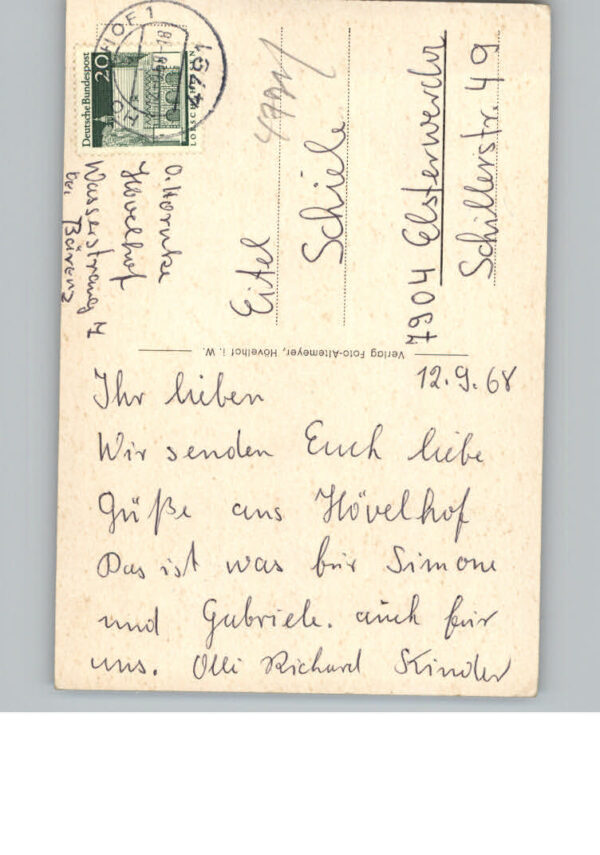 Deutsche Bundespost
20
LORSCH
HOF 1
4791
O. Hornke
Hövelhof
Wasserstrang 7
bei Börenz
Eitel
Schiele
7904 Elsterwerder
Schillerstr. 49
Verlag Foto-Altemeyer, Hövelhof i. W.
12.9.68
Ihr lieben
Wir senden Euch liebe
Güße aus Hövelhof
Das ist was für Simone
und Gabriele. auch für
uns. Olli Richard Kinder